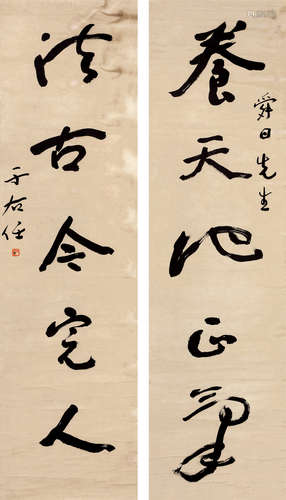 養天地正氣
舜日先生
法古今完人
于右任